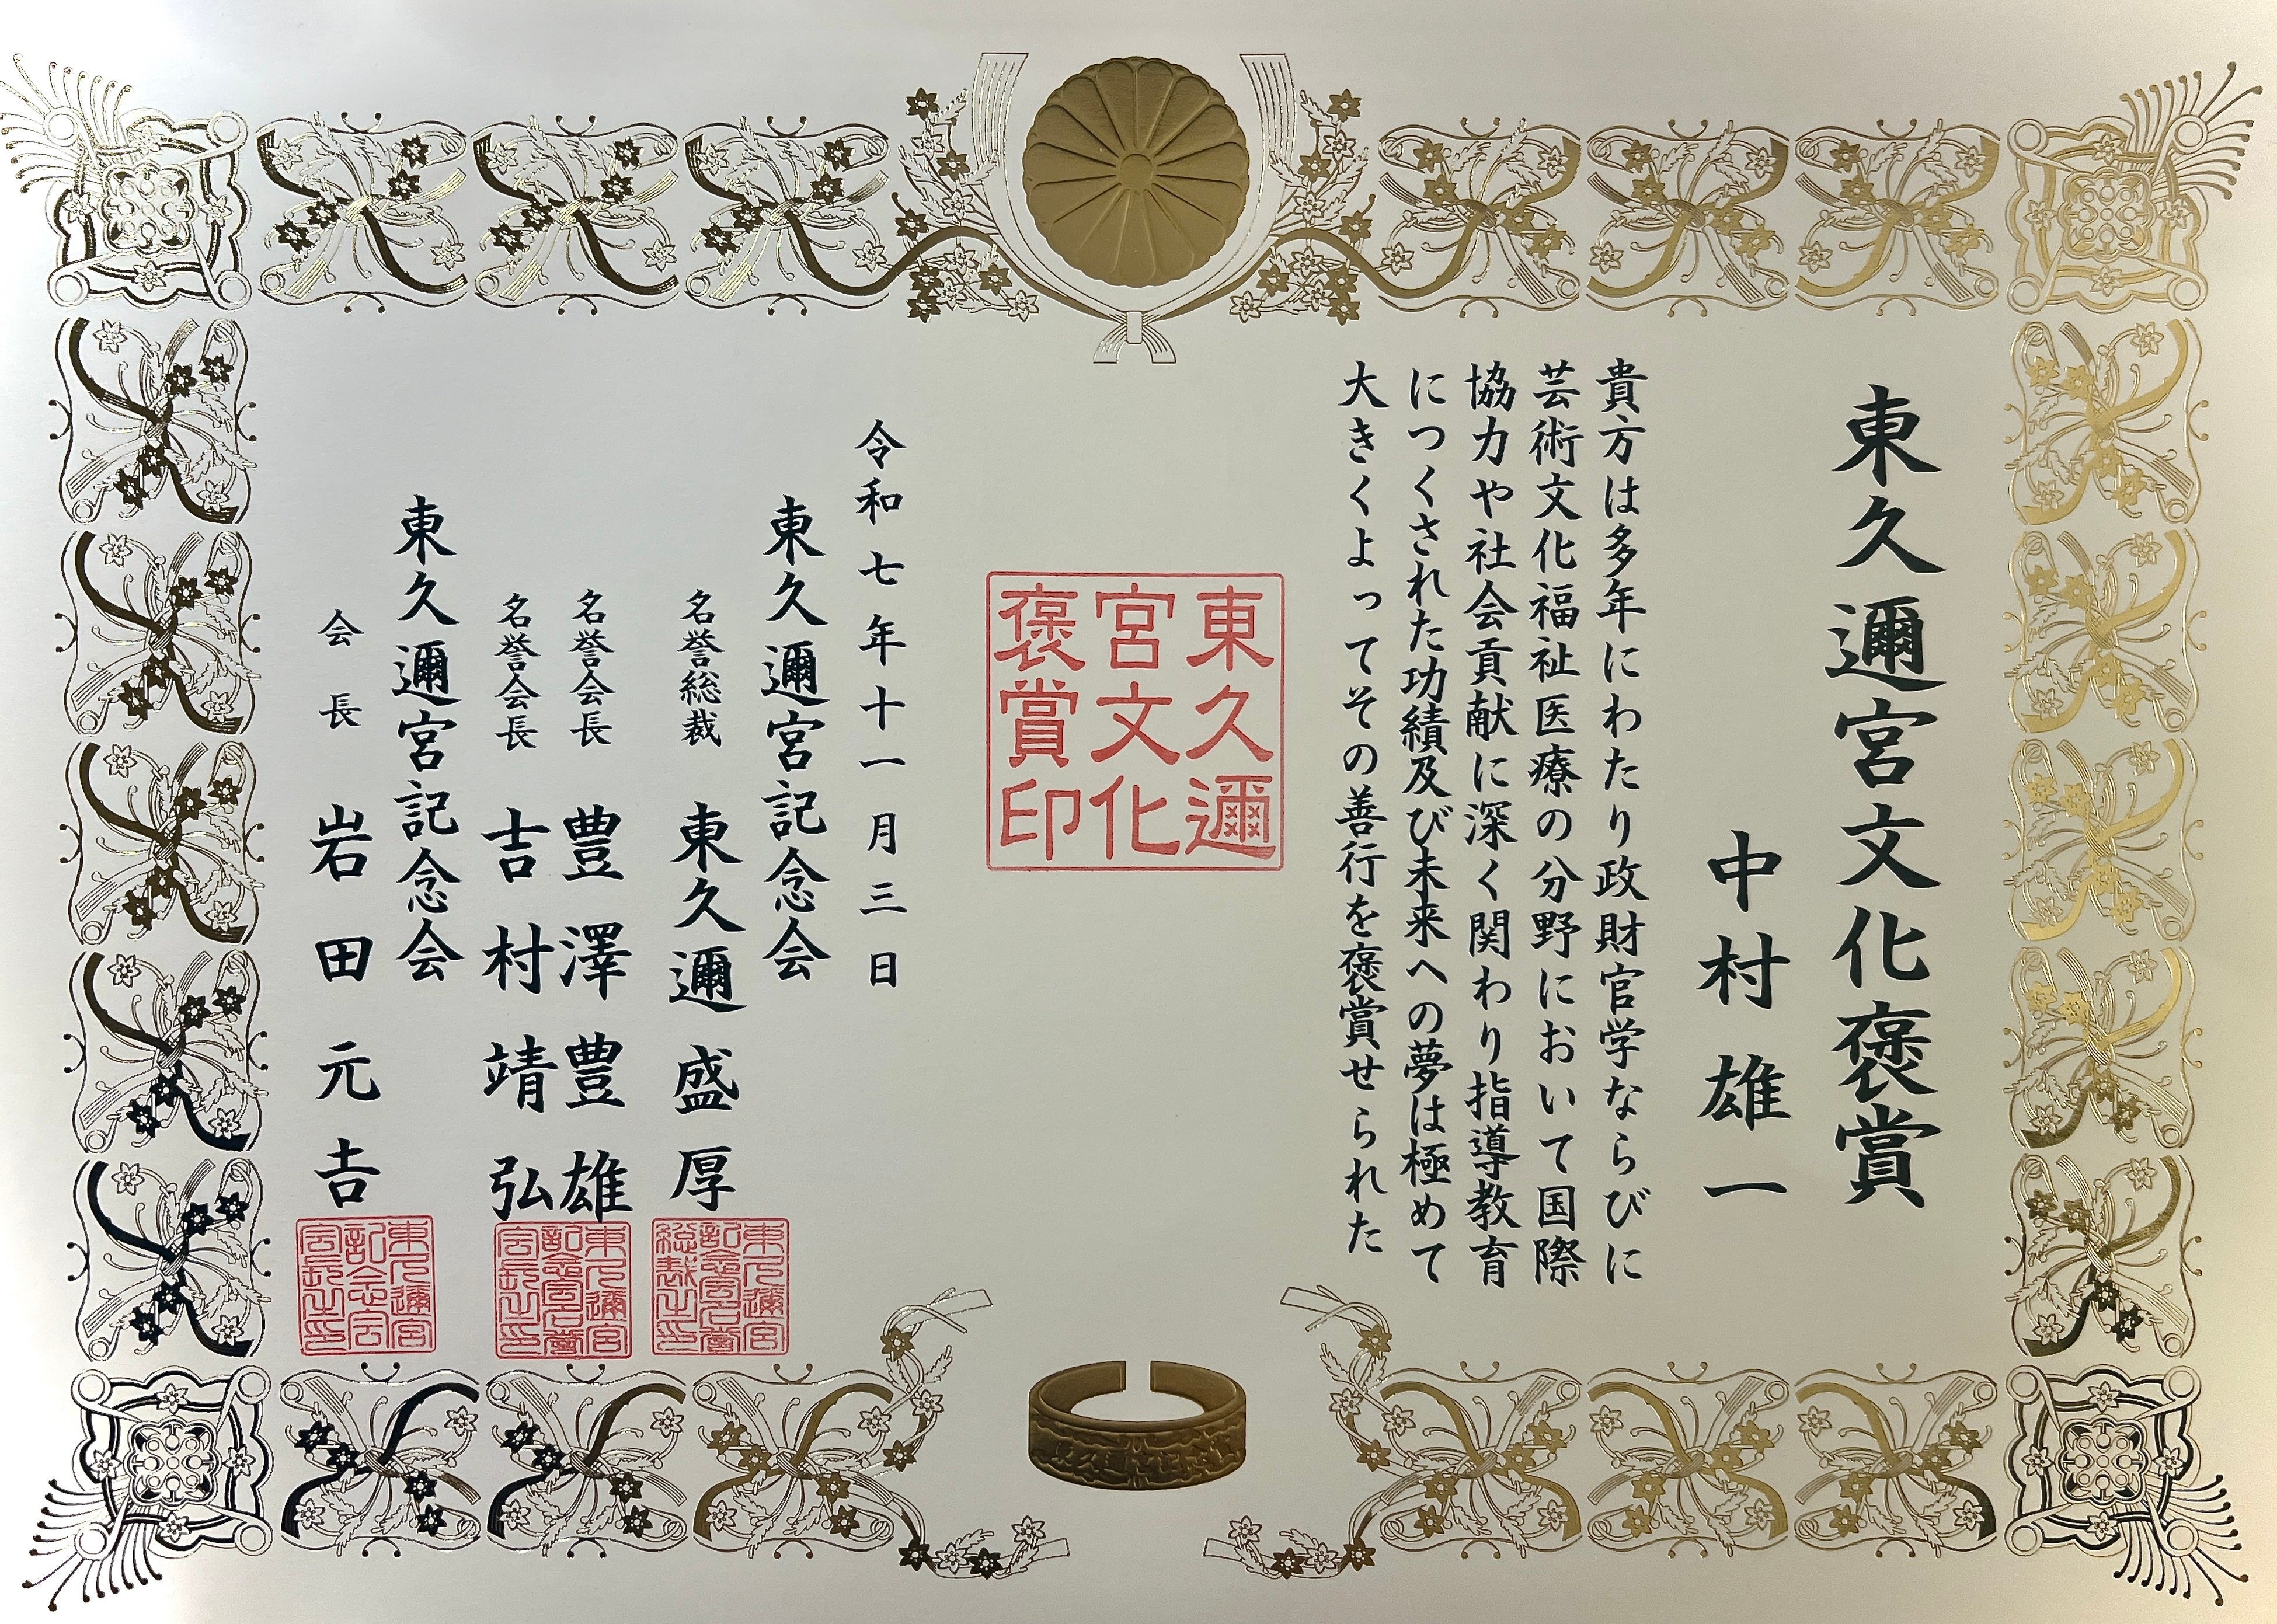 東久邇宮文化褒賞
中村雄一
貴方は多年にわたり政財官学ならびに
芸術文化福祉医療の分野において国際
協力や社会貢献に深く関わり指導教育
につくされた功績及び未来への夢は極めて
大きくよってその善行を褒賞せられた
東久邇
宮文化
褒賞印
令和七年十一月三日
東久邇宮記念会
名誉総裁 東久邇盛厚
名誉会長 豊澤豊雄
名誉会長 吉村靖弘
東久邇宮記念会
会長 岩田元吉
東久邇宮
記念会名誉
総裁之印
東久邇宮
記念会名誉
会長之印
東久邇宮
記念会
会長之印